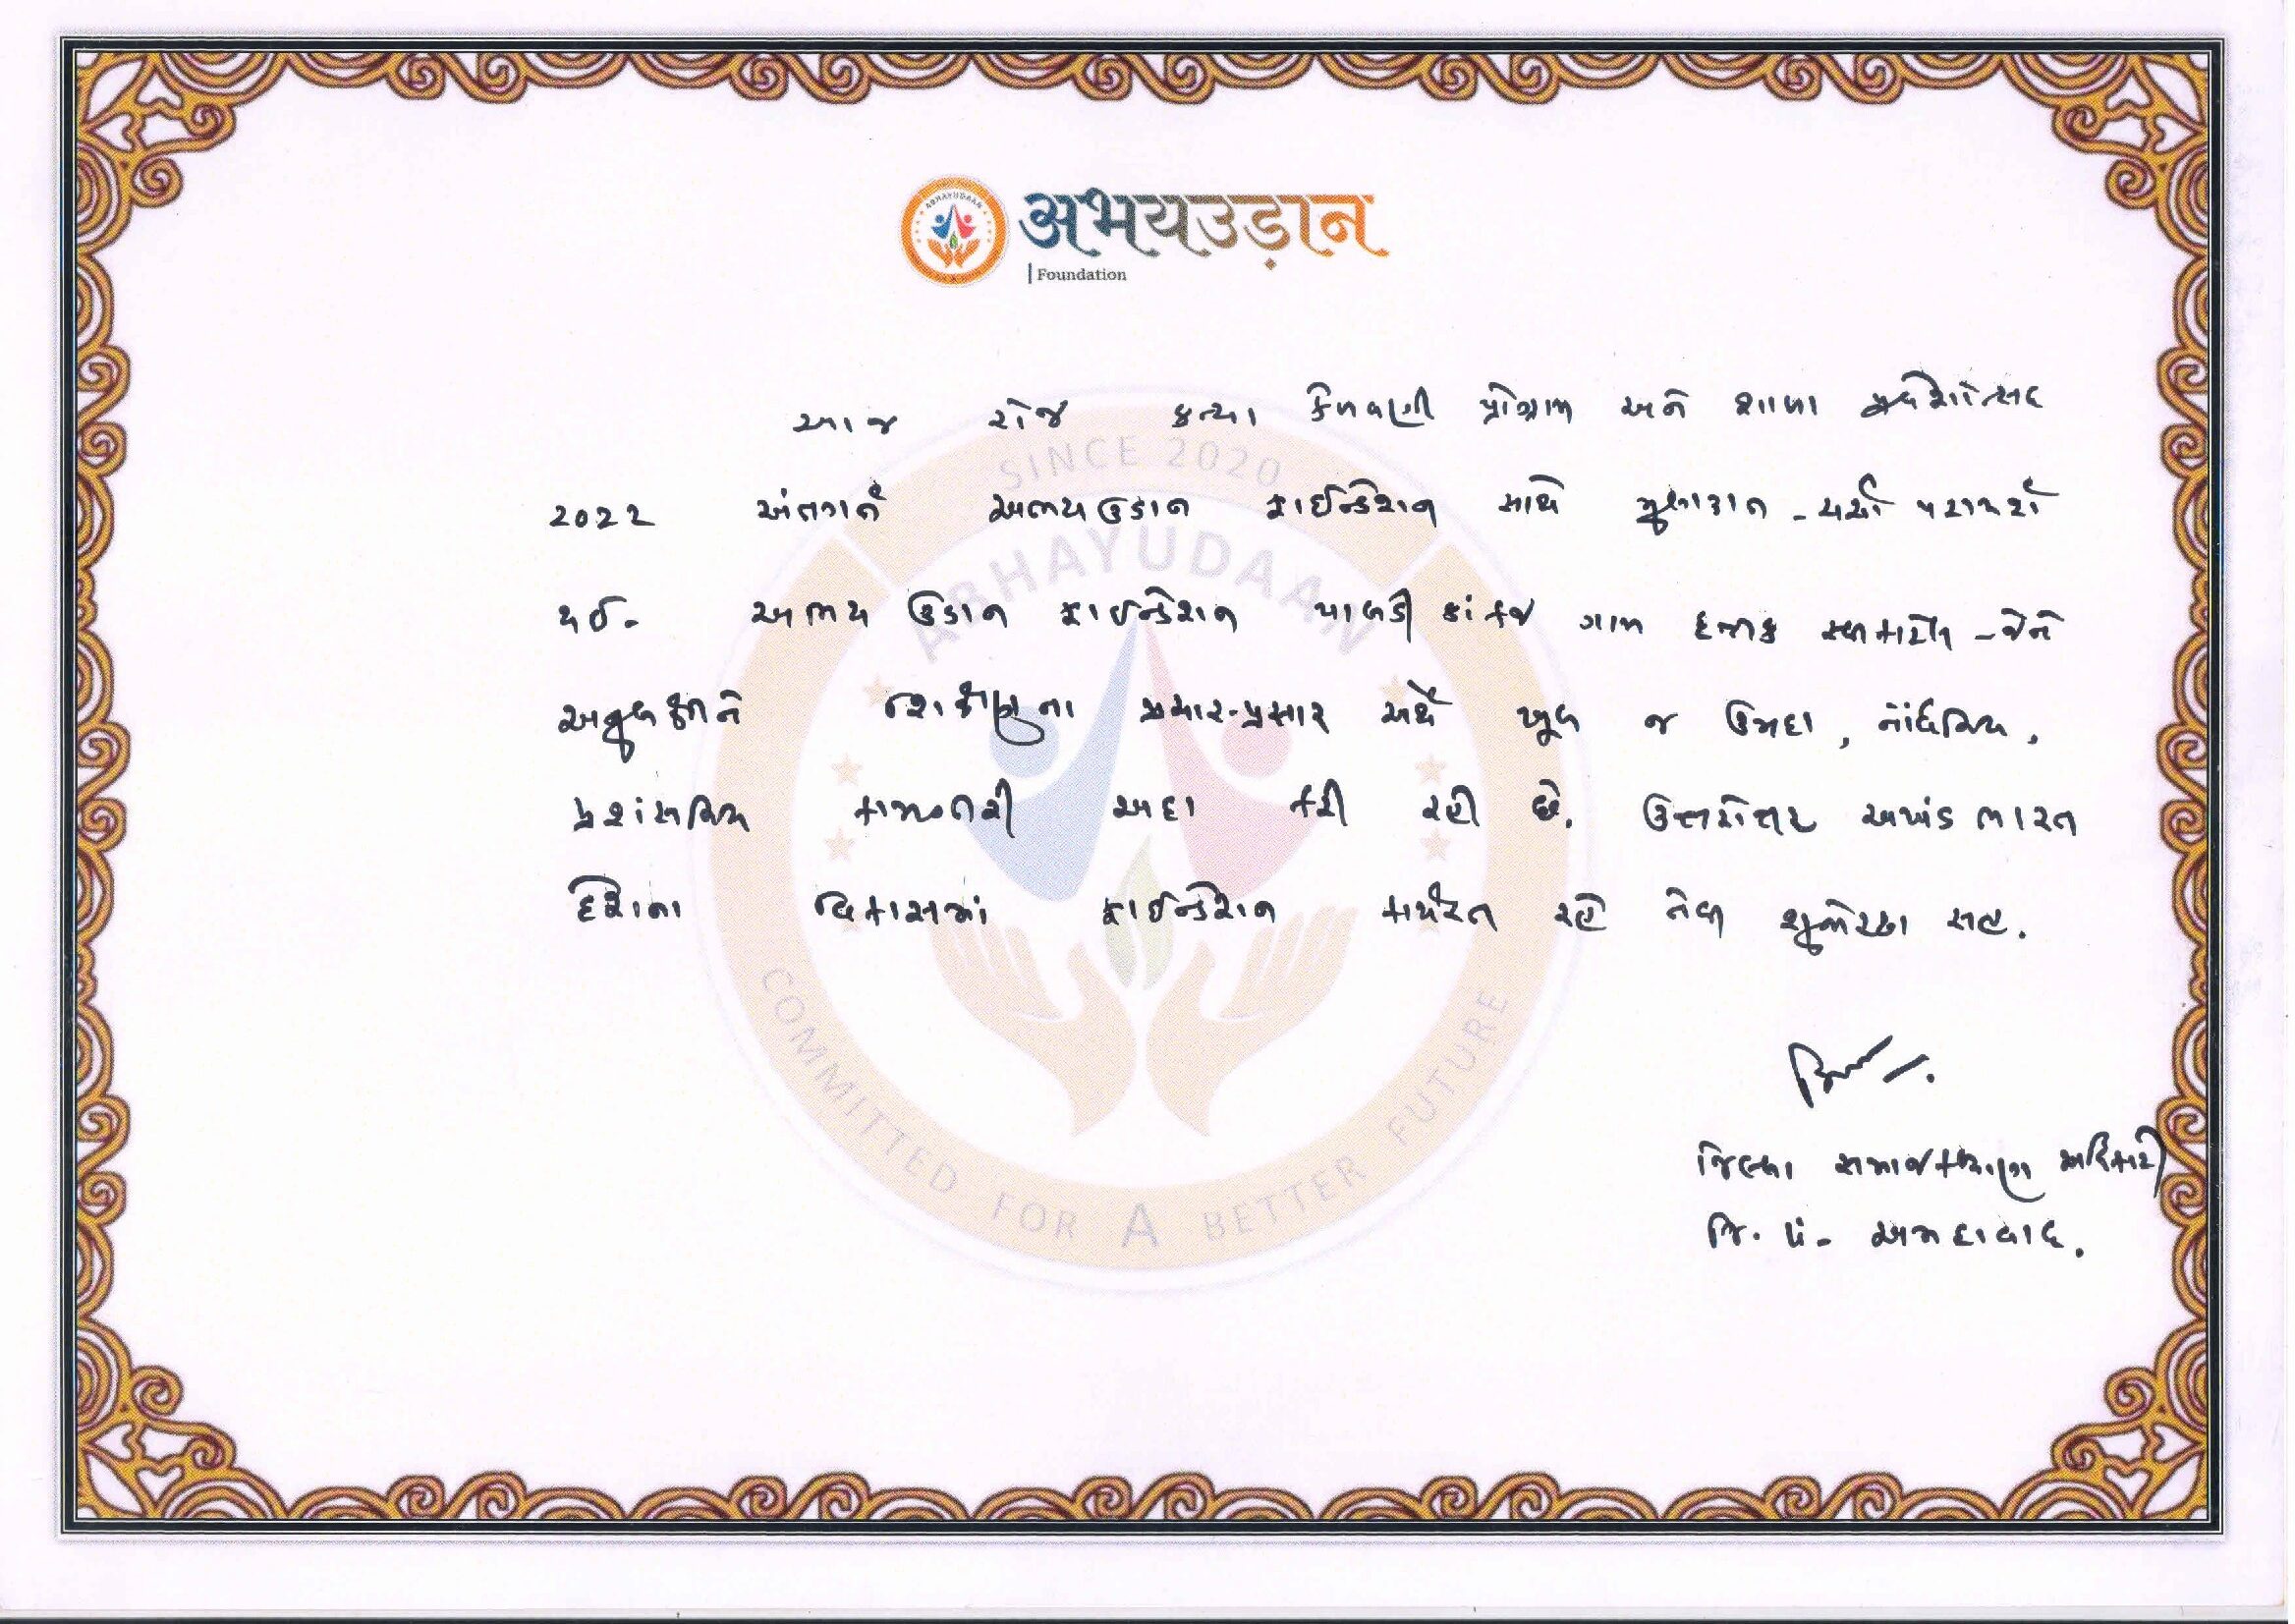 ABHAYUDAAN
अभयउड़ान
Foundation
આજ રોજ કન્યા કેળવણી પ્રોગ્રામ અને શાળા પ્રવેશોત્સવ
2022 અંતર્ગત અભયઉડાન ફાઉન્ડેશન સાથે મુલાકાત - ચર્ચા પરામર્શ
થઈ. અભય ઉડાન ફાઉન્ડેશન પાલડી કાંકજ ગામ દત્તક
શિક્ષણના પ્રચાર-પ્રસાર અર્થે ખૂબ જ ઉમદા, નોંધનિય,
પ્રશંસનિય કામગીરી અદા કરી રહી છે. ઉત્તરોત્તર અખંડ ભારત
દેશના વિકાસમાં ફાઉન્ડેશન કાર્યરત રહે તેવી શુભેચ્છા સહ.
જિલ્લા સમાજ કલ્યાણ અધિકારી
જિ. પં. અમદાવાદ.
SINCE 2020
ABHAYUDAAN
COMMITTED FOR A BETTER FUTURE